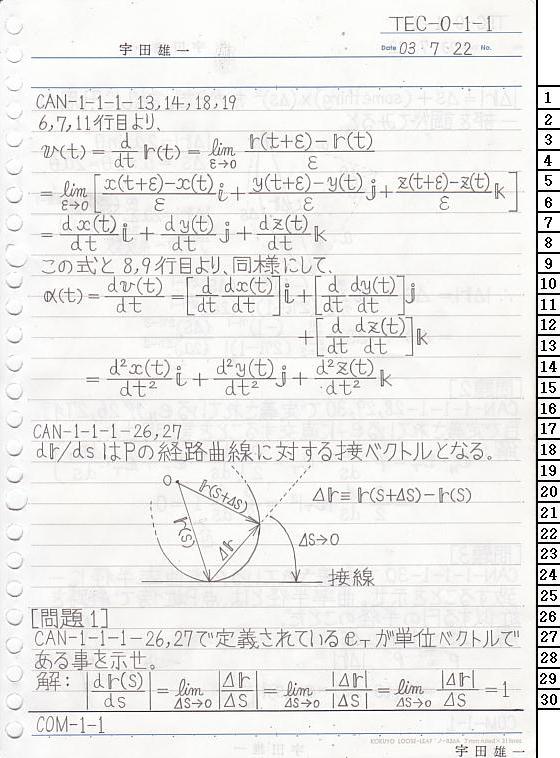 TEC-0-1-1
宇田雄一
Date 03・7・22 No.
CAN-1-1-1-13,14,18,19
6,7,11行目より、
v(t) = d/dt r(t) = lim_{ε→0} (r(t+ε)-r(t))/ε
= lim_{ε→0} [ (x(t+ε)-x(t))/ε i + (y(t+ε)-y(t))/ε j + (z(t+ε)-z(t))/ε k ]
= dx(t)/dt i + dy(t)/dt j + dz(t)/dt k
この式と8,9行目より、同様にして、
α(t) = dv(t)/dt = [d/dt dx(t)/dt] i + [d/dt dy(t)/dt] j
+ [d/dt dz(t)/dt] k
= d²x(t)/dt² i + d²y(t)/dt² j + d²z(t)/dt² k
CAN-1-1-1-26,27
dr/dsはPの経路曲線に対する接ベクトルとなる。
O
r(S+ΔS)
Δr≡r(S+ΔS)-r(S)
r(S)
Δr
ΔS→0
接線
[問題1]
CAN-1-1-1-26,27で定義されているe_Tが単位ベクトルで
ある事を示せ。
解: |dr(S)/ds| = lim_{ΔS→0} |Δr/ΔS| = lim_{ΔS→0} |Δr|/|ΔS| = lim_{ΔS→0} |Δr|/ΔS = 1
COM-1-1
宇田雄一
1
2
3
4
5
6
7
8
9
10
11
12
13
14
15
16
17
18
19
20
21
22
23
24
25
26
27
28
29
30